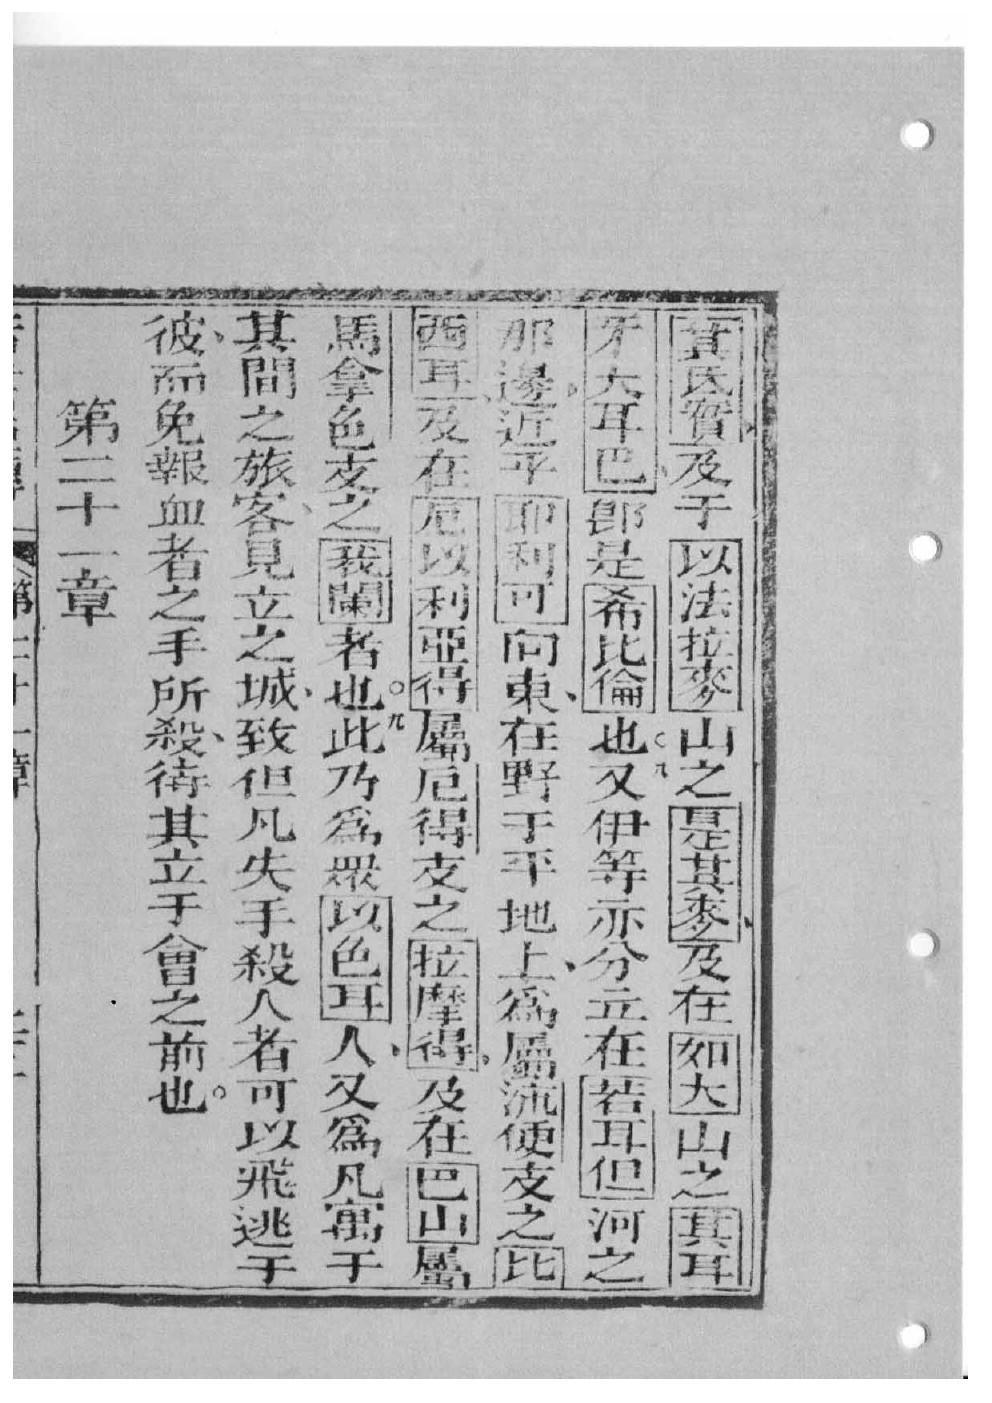 箕氏實及于以法拉麥山之是其麥及在如大山之其耳
牙大耳巴卽是希比倫也○八又伊等亦分立在若耳但河之
那邊近乎耶利可向東、在野于平地上、爲屬流便支之比
西耳、及在厄以利亞得屬厄得支之拉摩得、及在巴山屬
馬拿色支之我闌者也○九此乃爲眾以色耳人、又爲凡寓于
其間之旅客、見立之城、致但凡失手殺人者可以飛逃于
彼、而免報血者之手所殺、待其立于會之前也。
第二十一章
第二十一章